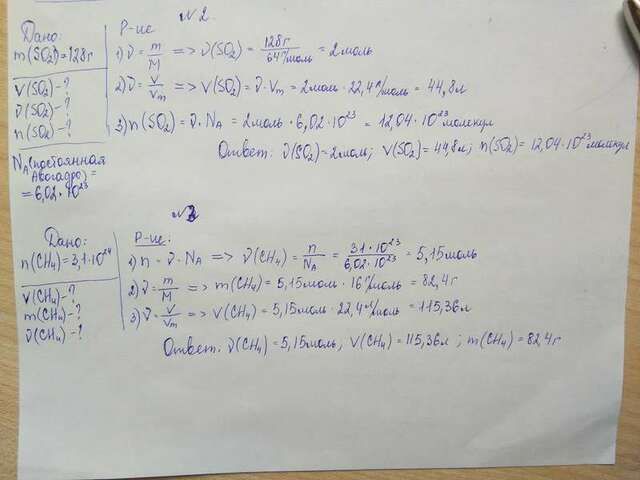 №2
Дано:
m(SO₂)=128г
V(SO₂)-?
ν(SO₂)-?
n(SO₂)-?
N_A(постоянная
Авогадро)=
=6,02·10²³
Р-ие
1) ν = m/M => ν(SO₂) = 128г/64г/моль = 2моль
2) ν = V/Vm => V(SO₂) = ν·Vm = 2моль·22,4л/моль = 44,8л
3) n(SO₂) = ν·N_A = 2моль·6,02·10²³ = 12,04·10²³молекул
Ответ: ν(SO₂)=2моль; V(SO₂)=44,8л; n(SO₂)=12,04·10²³молекул
№3
Дано:
n(CH₄)=3,1·10²⁴
V(CH₄)-?
m(CH₄)-?
ν(CH₄)-?
Р-ие:
1) n = ν·N_A => ν(CH₄) = n/N_A = 31·10²³/6,02·10²³ = 5,15моль
2) ν = m/M => m(CH₄) = 5,15моль·16г/моль = 82,4г
3) ν = V/Vm => V(CH₄) = 5,15моль·22,4л/моль = 115,36л
Ответ: ν(CH₄)=5,15моль, V(CH₄)=115,36л; m(CH₄)=82,4г